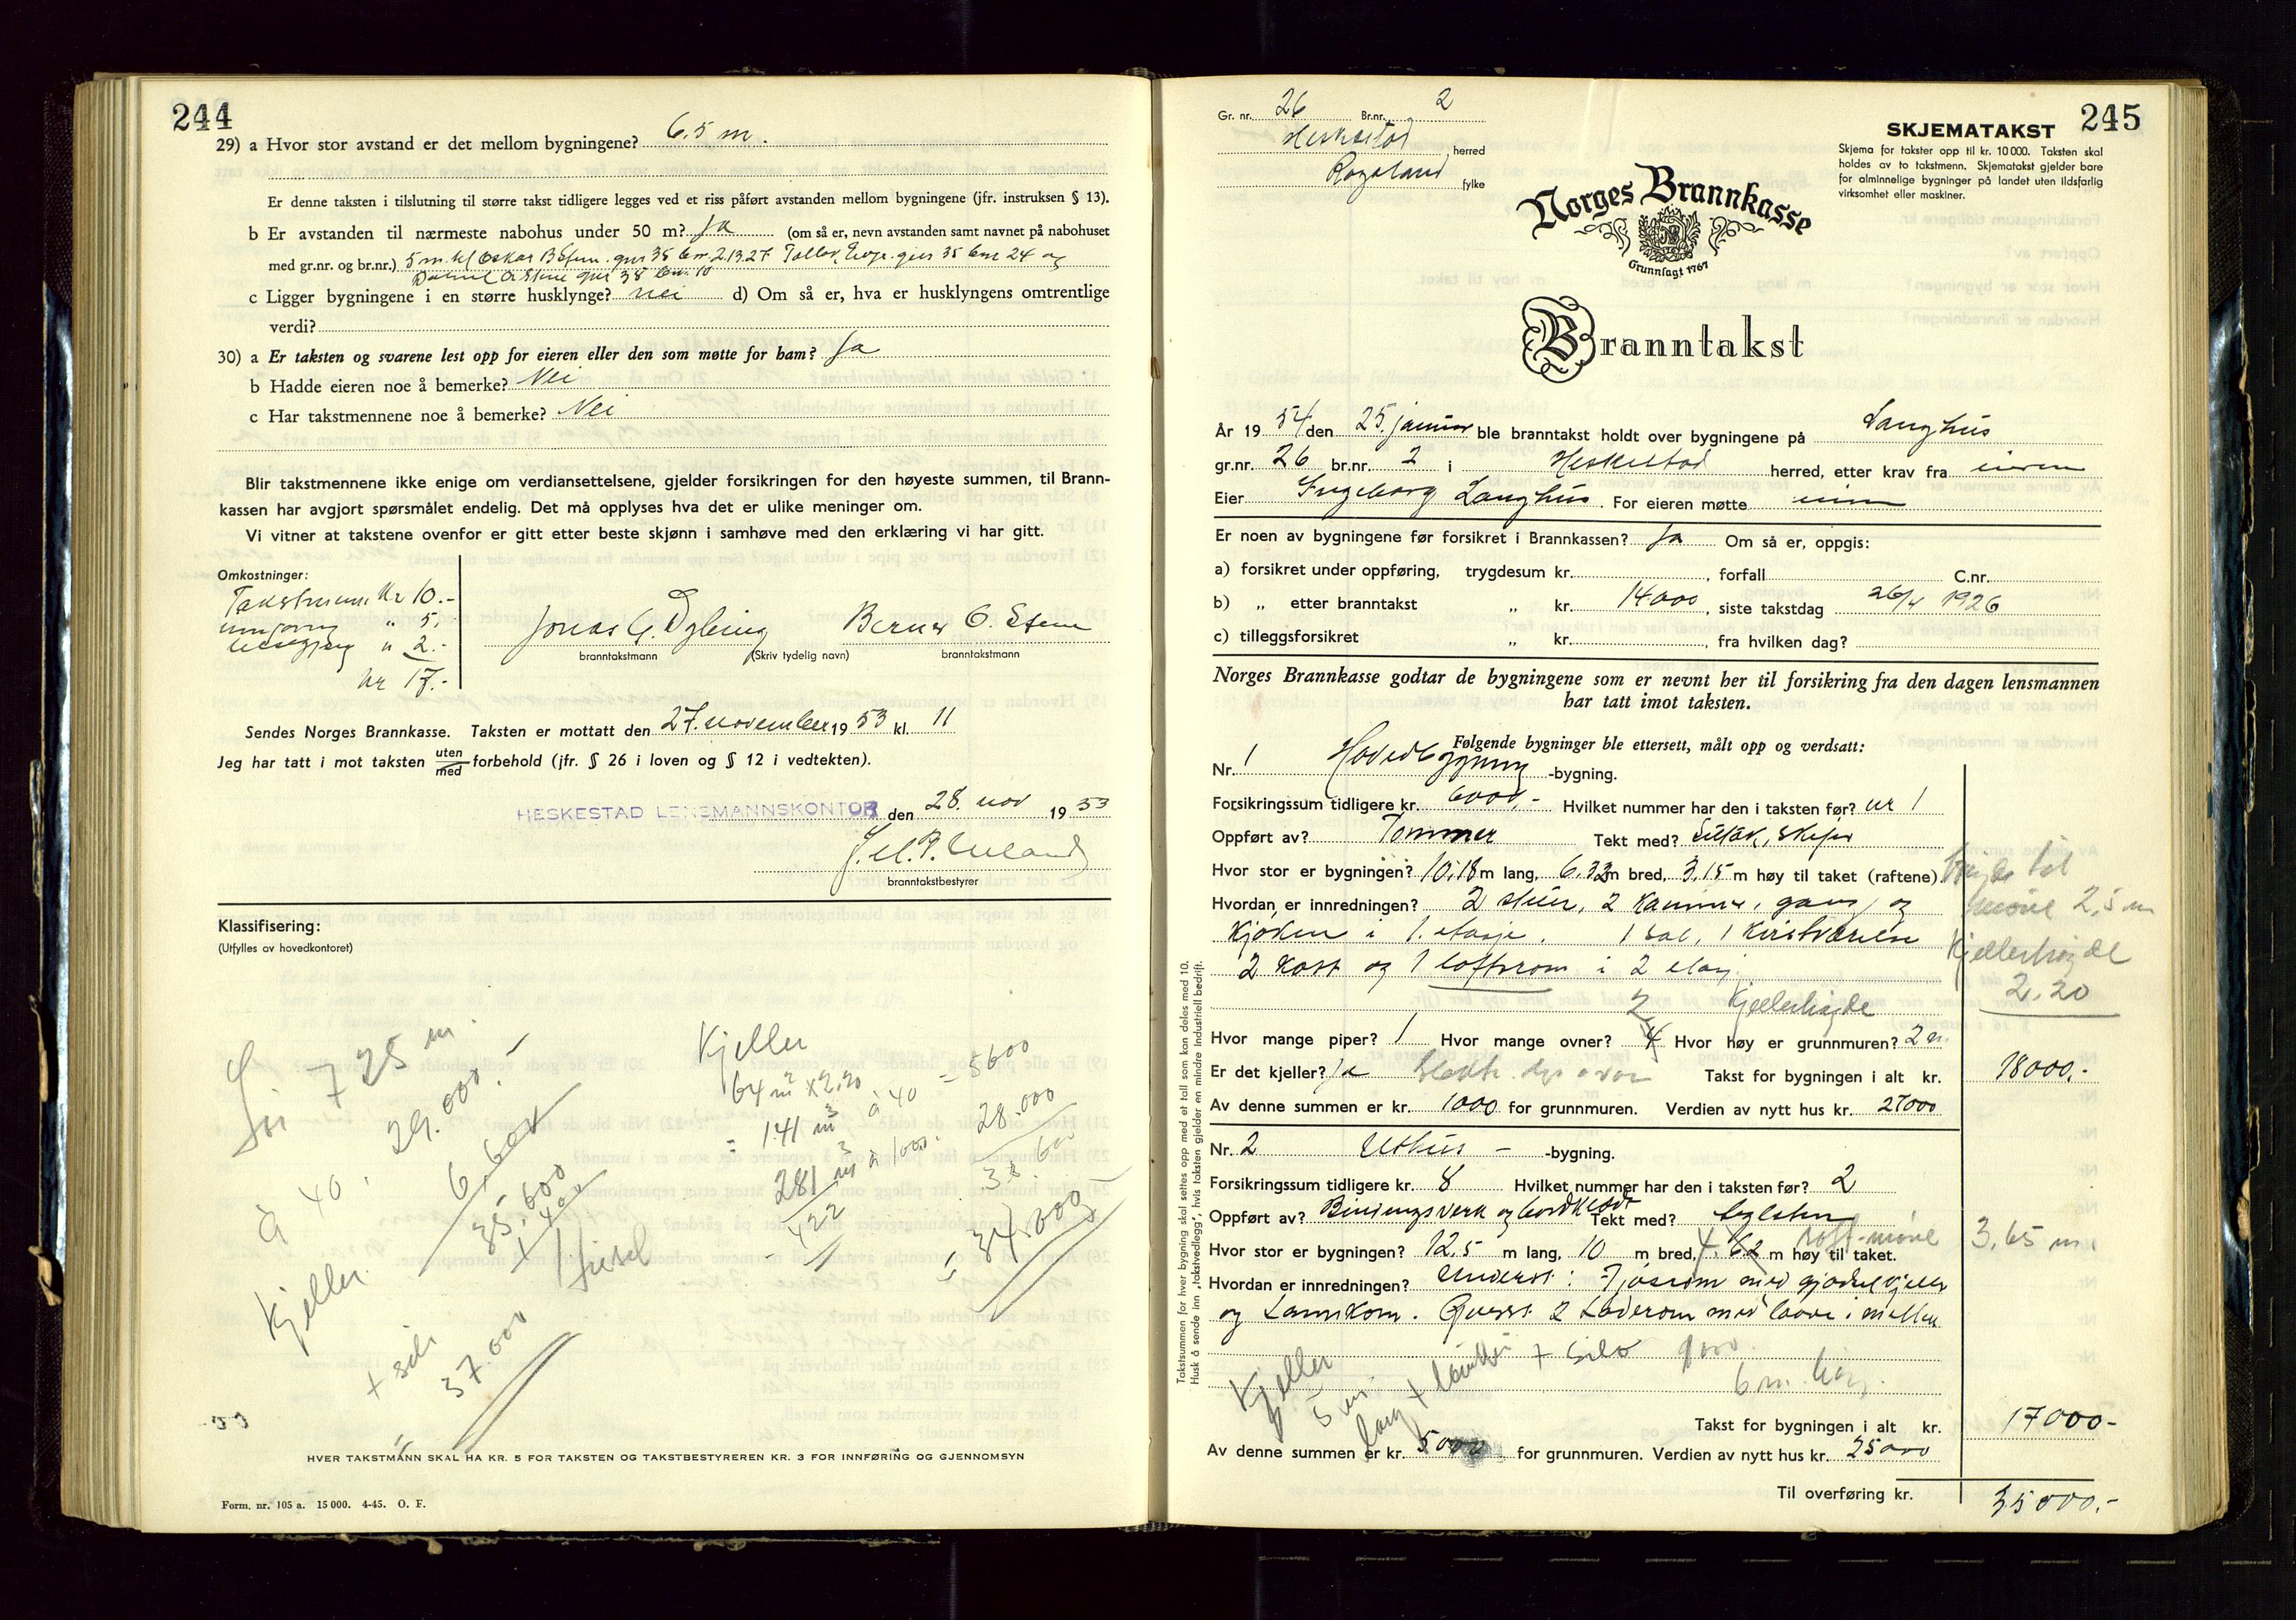 244
29) a Hvor stor avstand er det mellom bygningene? 6.5 m.
Er denne taksten i tilslutning til større takst tidligere legges ved et riss påført avstanden mellom bygningene (jfr. instruksen § 13).
b Er avstanden til nærmeste nabohus under 50 m? Ja (om så er, nevn avstanden samt navnet på nabohuset
med gr.nr. og br.nr.) 5 m. til Oskar B. Stene. gnr 35 bnr. 2.13.27 gnr 35 bnr 24 og
Daniel O. Stene gnr 38 bnr. 10
c Ligger bygningene i en større husklynge? nei d) Om så er, hva er husklyngens omtrentlige
verdi?
30) a Er taksten og svarene lest opp for eieren eller den som møtte for ham? Ja
b Hadde eieren noe å bemerke? Nei
c Har takstmennene noe å bemerke? Nei
Blir takstmennene ikke enige om verdiansettelsene, gjelder forsikringen for den høyeste summen, til Brann-
kassen har avgjort spørsmålet endelig. Det må opplyses hva det er ulike meninger om.
Vi vitner at takstene ovenfor er gitt etter beste skjønn i samhøve med den erklæring vi har gitt.
Omkostninger:
Takstmenn Kr 10.-
" 5,
" 2.-
kr 17.-
Jonas G. Berner O. Stene
branntakstmann (Skriv tydelig navn) branntakstmann
Sendes Norges Brannkasse. Taksten er mottatt den 27. november 19 53 kl. 11
Jeg har tatt i mot taksten uten/med forbehold (jfr. § 26 i loven og § 12 i vedtekten).
HESKESTAD LENSMANNSKONTOR den 28. nov 19 53
branntakstbestyrer
Klassifisering:
(Utfylles av hovedkontoret)
725 m
à 40. 29.000.-
Kjeller 6.600
35.600
+ silo
37.000
Kjeller
64 m² x 2,20
= 141 m³ à 40 = 5600
281 m³ à 100.- 28.000
422
33.600
34.000
HVER TAKSTMANN SKAL HA KR. 5 FOR TAKSTEN OG TAKSTBESTYREREN KR. 3 FOR INNFØRING OG GJENNOMSYN
Form. nr. 105 a. 15 000. 4-45. O. F.
245
Gr. nr. 26 Br.nr. 2
Heskestad herred
Rogaland fylke
SKJEMATAKST
Skjema for takster opp til kr. 10 000. Taksten skal
holdes av to takstmenn. Skjematakst gjelder bare
for alminnelige bygninger på landet uten ildsfarlig
virksomhet eller maskiner.
Norges Brannkasse
Grunnlagt 1767
Branntakst
År 19 54 den 25. januar ble branntakst holdt over bygningene på Langhus
gr.nr. 26 br.nr. 2 i Heskestad herred, etter krav fra eieren
Eier Ingeborg Langhus. For eieren møtte eieren
Er noen av bygningene før forsikret i Brannkassen? Ja Om så er, oppgis:
a) forsikret under oppføring, trygdesum kr. , forfall C.nr.
b) „ etter branntakst „ kr. 14000, siste takstdag 26/4 1926
c) tilleggsforsikret „ kr. , fra hvilken dag?
Norges Brannkasse godtar de bygningene som er nevnt her til forsikring fra den dagen lensmannen
har tatt imot taksten.
Følgende bygninger ble ettersett, målt opp og verdsatt:
Nr. 1 Hovedbygning -bygning.
Forsikringssum tidligere kr. 6000,- Hvilket nummer har den i taksten før? nr 1
Oppført av? Tømmer Tekt med? Sutak, skifer
Hvor stor er bygningen? 10,18 m lang, 6.32 m bred, 3,15 m høy til taket (raftene).
Høyde til møne 2,5 m
Hvordan er innredningen? 2 stuer, 2 kammer, gang og
kjøken i 1. etasje. 1 sal,
2 kott og 1 loftsrom i 2 etasj.
Kjellerhøyde
2.20
2 Kjellerhøyde
Hvor mange piper? 1 Hvor mange ovner? 4 Hvor høy er grunnmuren? 2 m.
Er det kjeller? Ja Takst for bygningen i alt kr. 18000.-
Av denne summen er kr. 1000 for grunnmuren. Verdien av nytt hus kr. 27000
Nr. 2 Uthus - -bygning.
Forsikringssum tidligere kr. 8 Hvilket nummer har den i taksten før? 2
Oppført av? Bindingsverk og bordkledt Tekt med? teglsten
Hvor stor er bygningen? 12,5 m lang, 10 m bred, 4.62 m høy til taket. raft-møne 3,65 m.
Hvordan er innredningen? Underst: Fjøsrom med gjødselkjeller
og Lannkom. Øverst 2 Laderom med laave i mellom
Kjeller 5 m. lang + silo
6 m. høy.
Takst for bygningen i alt kr. 17000-
Av denne summen er kr. 5000 for grunnmuren. Verdien av nytt hus kr. 25000
Til overføring kr. 35000.-
Takstsummen for hver bygning skal settes opp med et tall som kan deles med 10.
Husk å sende inn „takstvedlegg“, hvis taksten gjelder en mindre industriell bedrift.